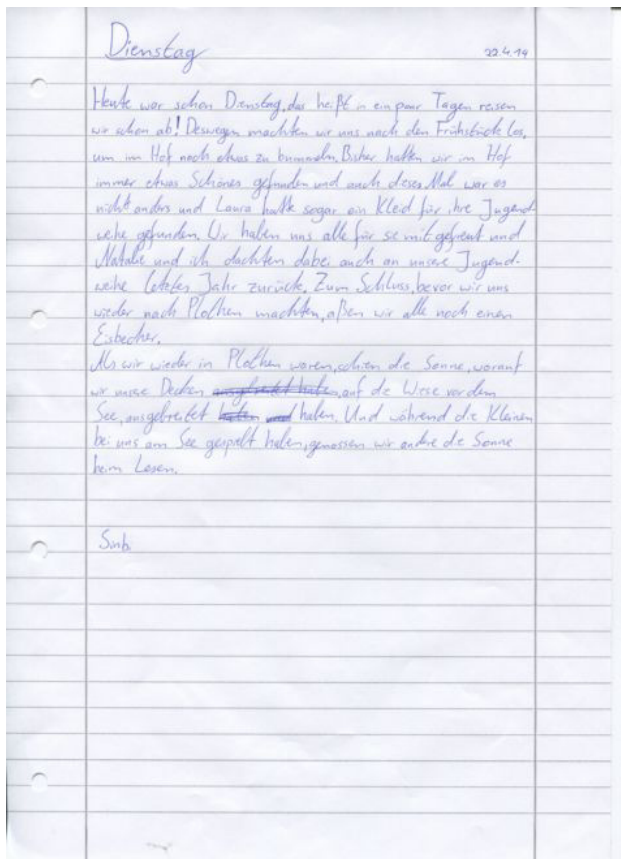 Dienstag 22.4.14
Heute war schon Dienstag, das heißt in ein paar Tagen reisen
wir schon ab! Deswegen machten wir uns nach dem Frühstück los,
um im Hof noch etwas zu bummeln. Bisher hatten wir im Hof
immer etwas Schönes gefunden und auch dieses Mal war es
nicht anders und Laura hatte sogar ein Kleid für ihre Jugend-
weihe gefunden. Wir haben uns alle für sie mit gefreut und
Natalie und ich dachten dabei auch an unsere Jugend-
weihe letztes Jahr zurück. Zum Schluss, bevor wir uns
wieder nach Plothen machten, aßen wir alle noch einen
Eisbecher.
Als wir wieder in Plothen waren, schien die Sonne, worauf
wir unsere Decken ausgebreitet haben, auf die Wiese vor dem
See, ausgebreitet haben und haben. Und während die Kleinen
bei uns am See gespielt haben, genossen wir andre die Sonne
beim Lesen.